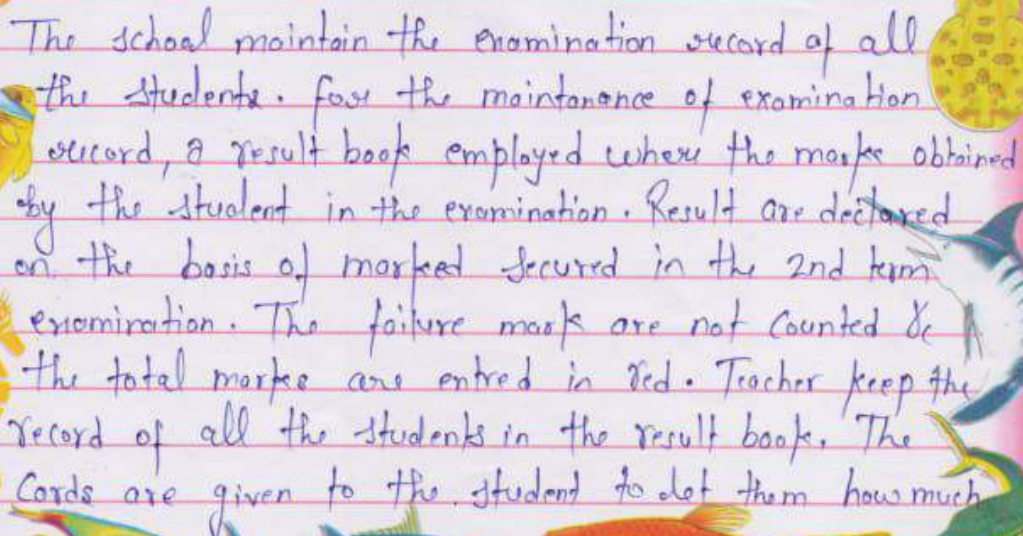 The school maintain the examination record of all
the students. for the maintanance of examination
record, a result book employed where the marks obtained
by the student in the examination. Result are declared
on the basis of marked secured in the 2nd term
examination. The failure mark are not counted &
the total marks are entred in red. Teacher keep the
record of all the students in the result book. The
Cards are given to the student to let them how much